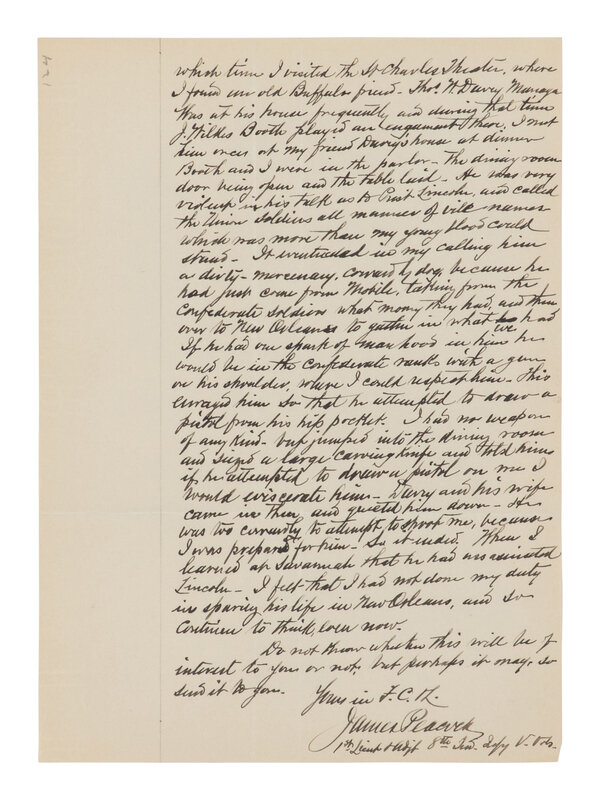 124
which time I visited the St Charles Theater, where
I found our old Buffalo friend. Thos. W. Davey Manager
Was at his house frequently, and during that time
J. Wilkes Booth played an engagement there, I met
him once at my friend Davey's house at dinner
Booth and I were in the parlor - the dining room
door being open and the table laid - He was very
violent in his talk as to Prest Lincoln, and called
the Union Soldiers all manner of vile names
which was more than my young blood could
stand - It eventuated in my calling him
a dirty - mercenary, cowardly dog, because he
had just come from Mobile, taking from the
Confederate soldiers what money they had, and then
over to New Orleans to gather in what we had
If he had one spark of manhood in him he
would be in the Confederate ranks with a gun
on his shoulder, where I could respect him - This
enraged him so that he attempted to draw a
pistol from his hip pocket. I had no weapon
of any kind - but jumped into the dining room
and seized a large carving knife and told him
if he attempted to draw a pistol on me I
would eviscerate him - Davey and his wife
came in then and quieted him down - He
was too cowardly to attempt to shoot me, because
I was prepared for him - So it ended. When I
learned at Savannah that he had assassinated
Lincoln - I felt that I had not done my duty
in sparing his life in New Orleans, and so
continue to think, even now.
Do not know whether this will be of
interest to you or not, but perhaps it may, so
send it to you.
Yours in F. C. & L.
James Peacock
1st Lieut & Adjt 8th Ind. Infy V. Vols.